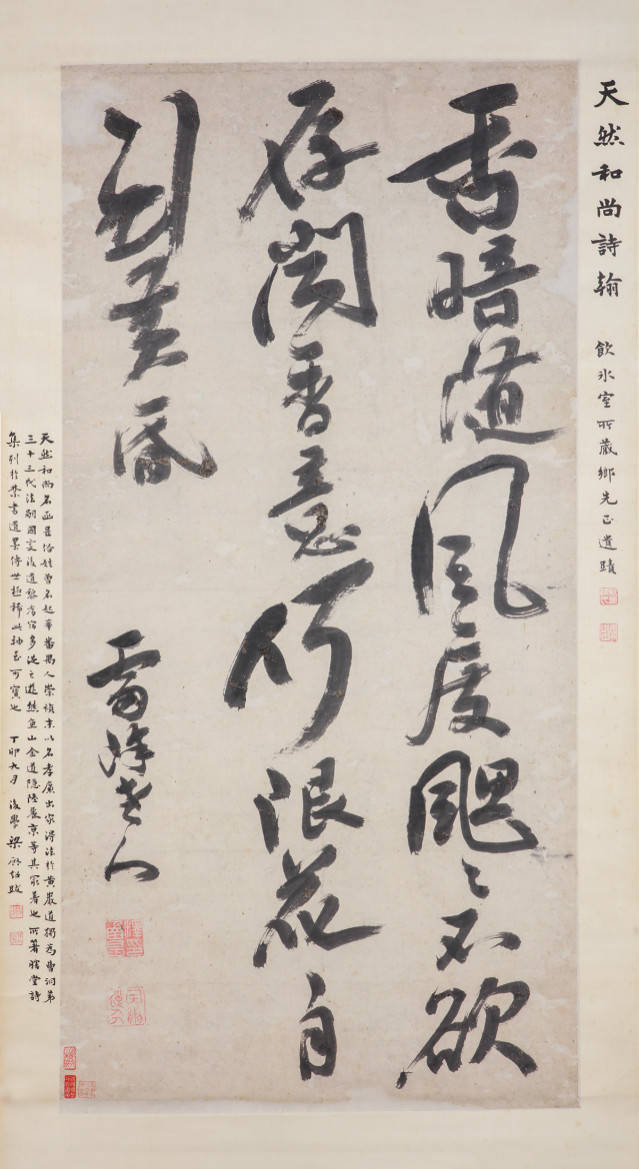 天然和尚詩翰 飲冰室所藏鄉先正遺蹟
香暗隨風度颸〻不欲
存閑意何限花自
到黃昏
雷峰老人
天然和尚名函昰俗姓曾名起莘番禺人崇禎末以名孝廉出家得法於黃巖道獨為曹洞第
三十三代法嗣國變後遺黎耆宿多從之遊熊魚山金道隱陸麗京等其最著也所著瞎堂詩
集列於禁書遺墨傳世極稀此軸至可寶也 丁卯九月 後學梁啟超跋